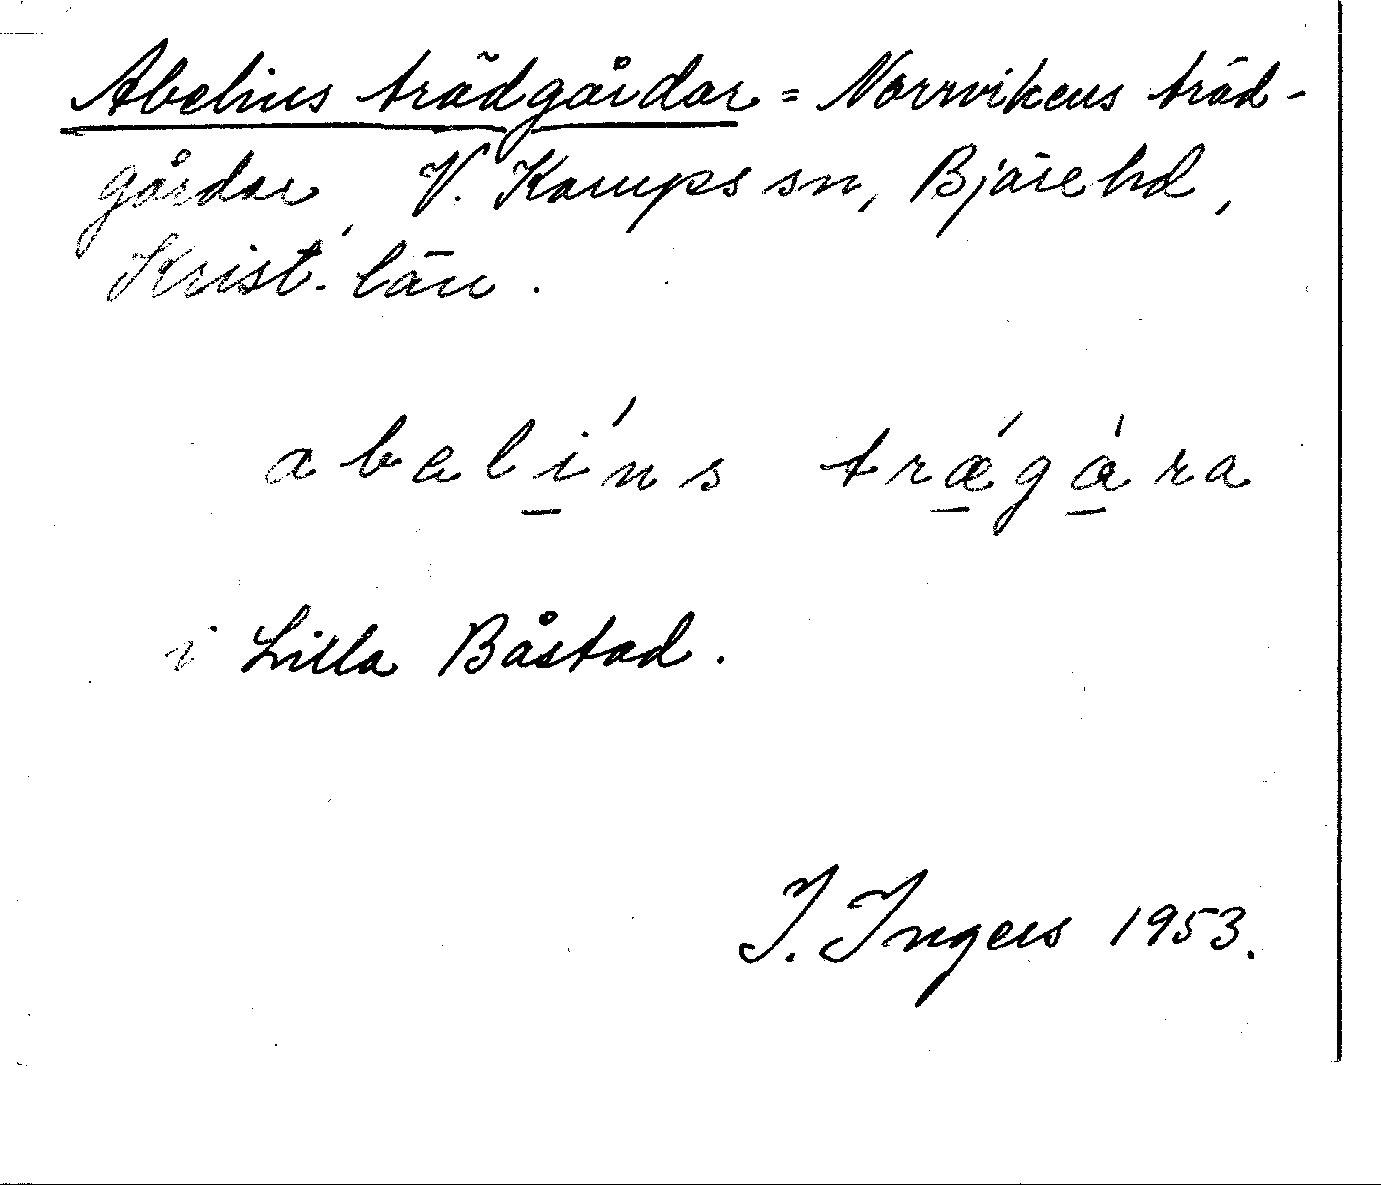 Abelins trädgårdar = Norrvikens träd-
gårdar, V. Karups sn, Bjäre hd,
Krist. län.
abelíns trǽgåra
i Lilla Båstad.
I. Ingers 1953.